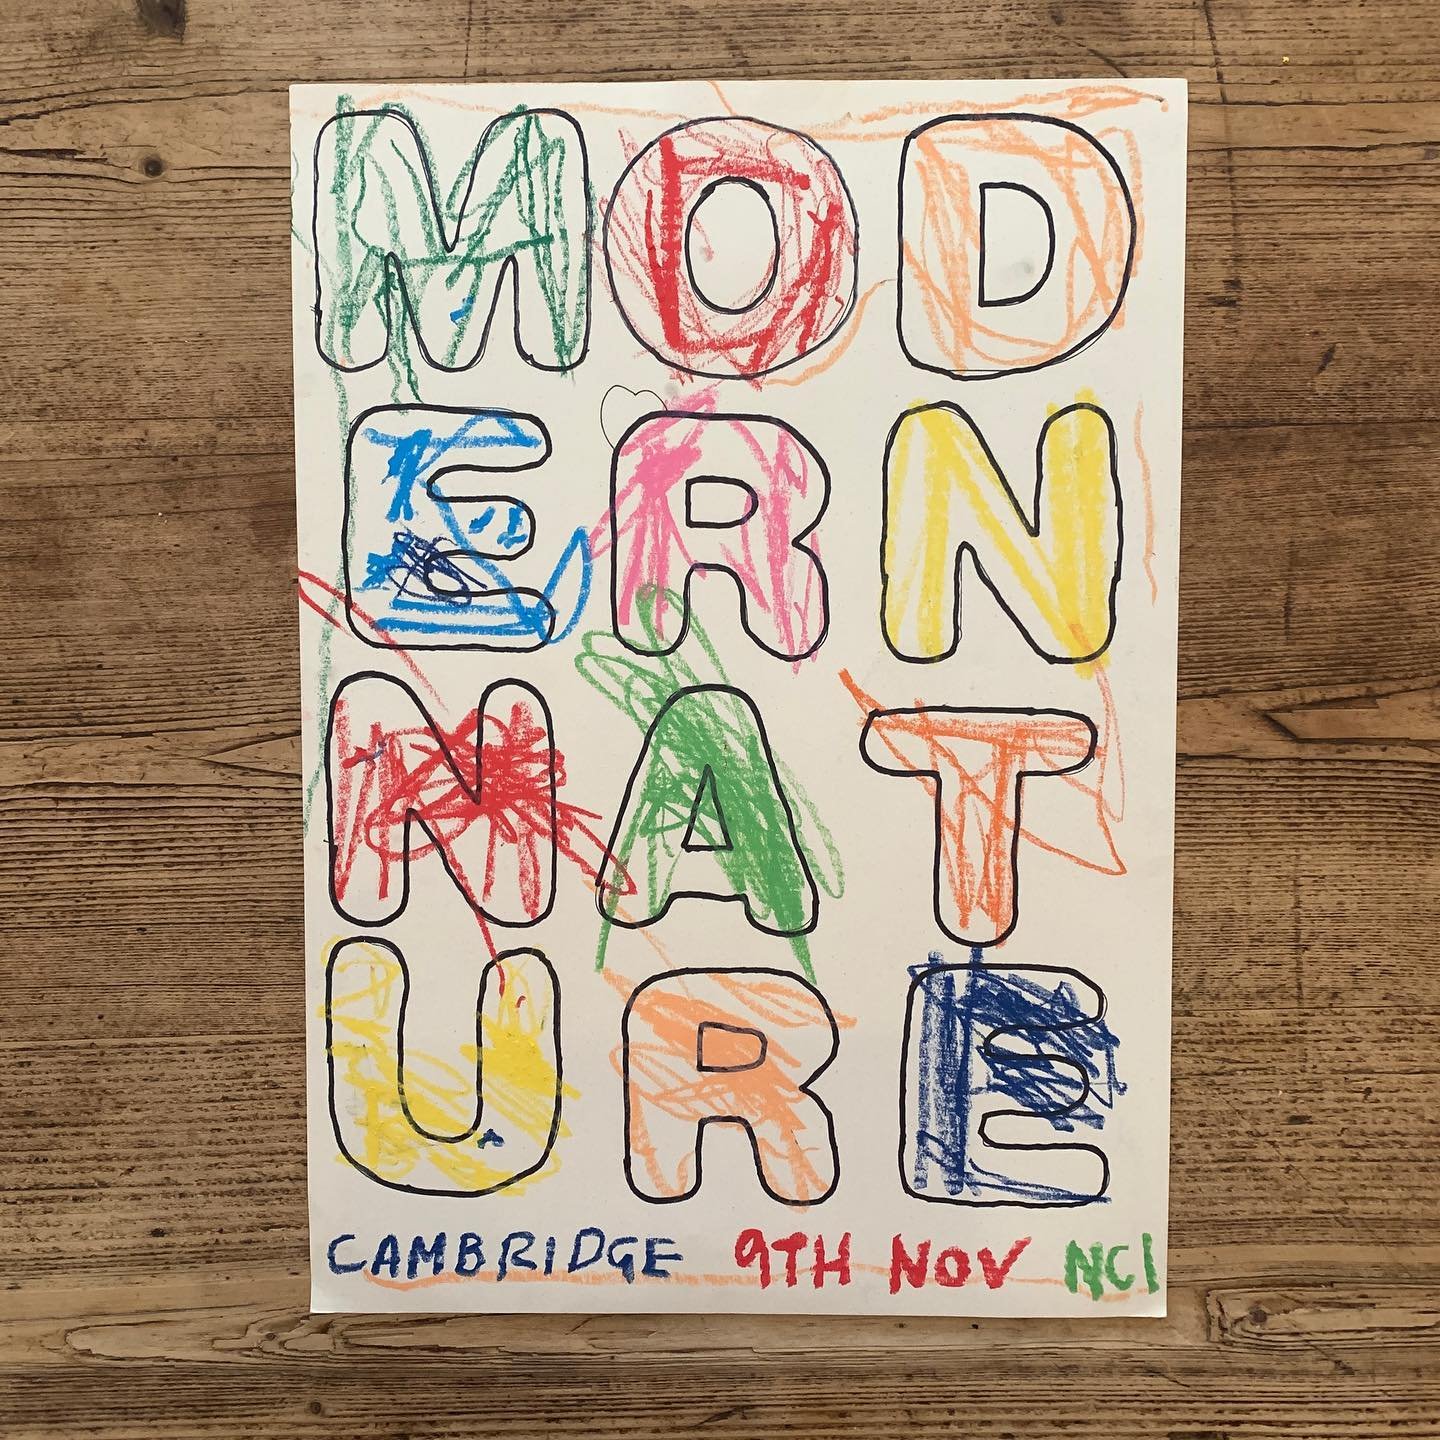 MOD
ERN
NAT
URE
CAMBRIDGE 9TH NOV NCI